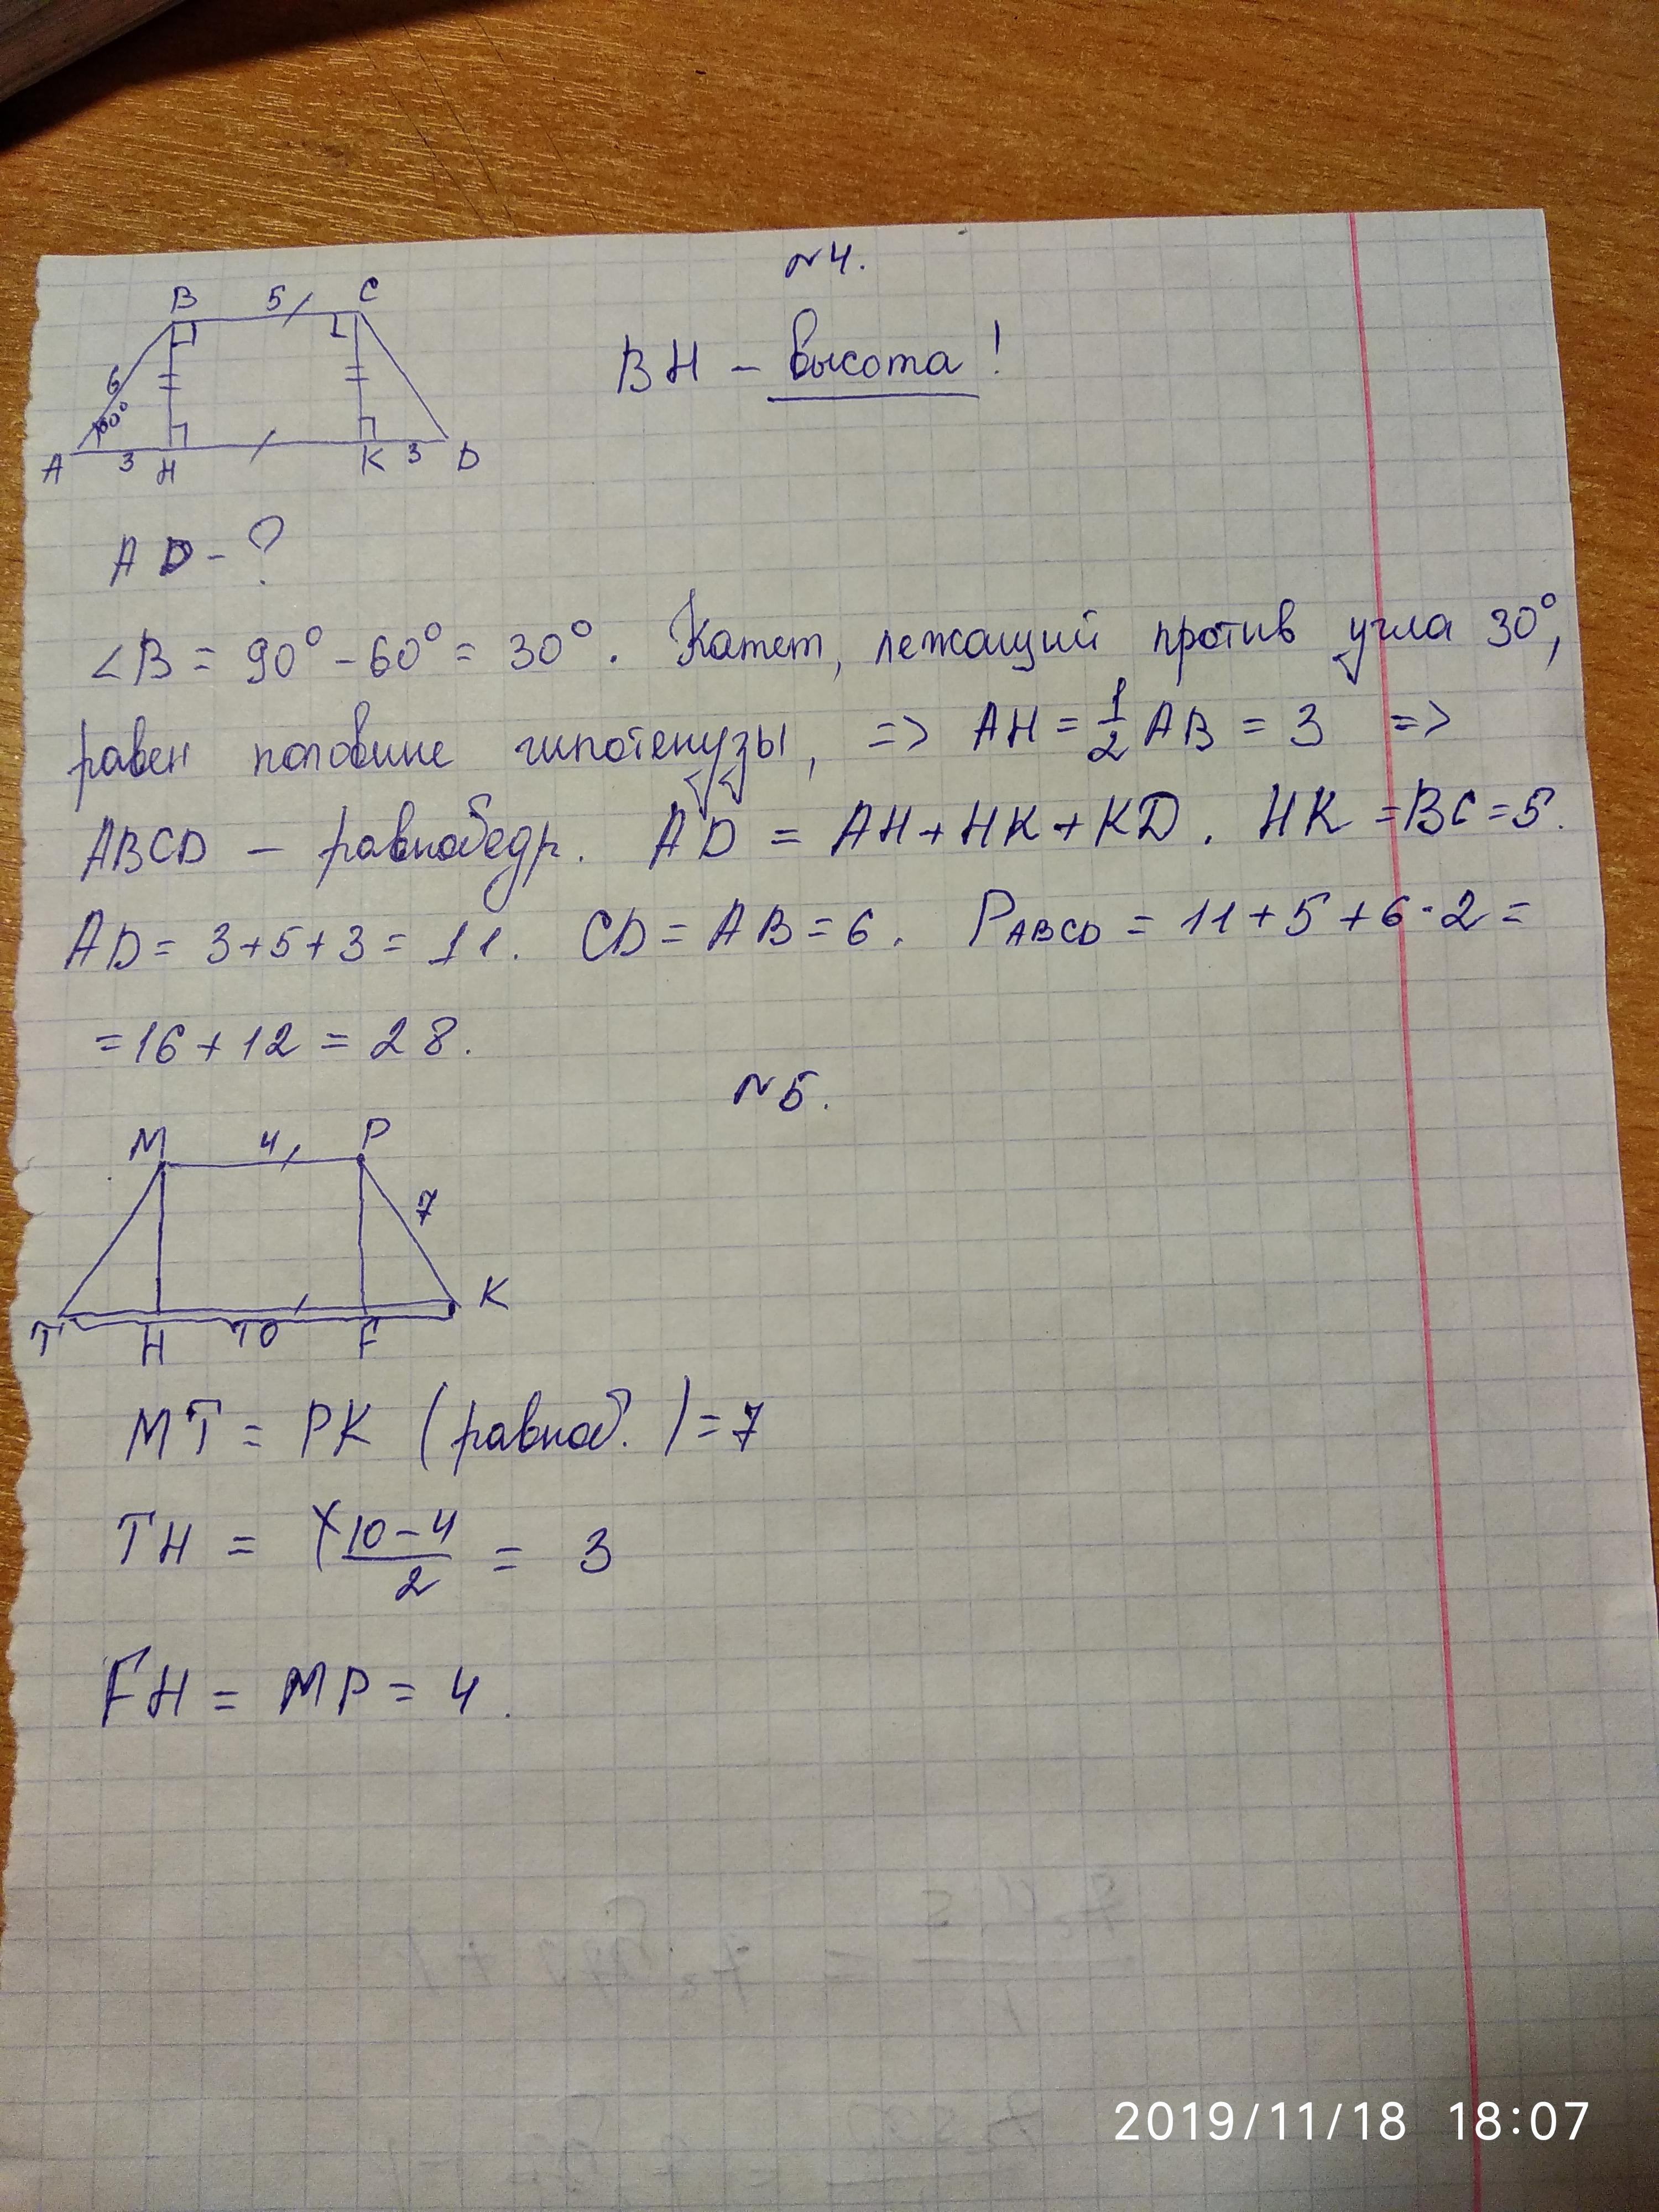 №4.
B 5 C
6
60°
A 3 H K 3 D
BH - высота!
AD - ?
∠B = 90° - 60° = 30°. Катет, лежащий против угла 30°,
равен половине гипотенузы, => AH = 1/2 AB = 3 =>
ABCD - равнобедр. AD = AH + HK + KD. HK = BC = 5.
AD = 3 + 5 + 3 = 11. CD = AB = 6. PABCD = 11 + 5 + 6 · 2 =
= 16 + 12 = 28.
№5.
M 4 P
7
K
T H 10 F
MT = PK (равноб.) = 7
TH = (10 - 4)/2 = 3
FH = MP = 4.
2019/11/18 18:07